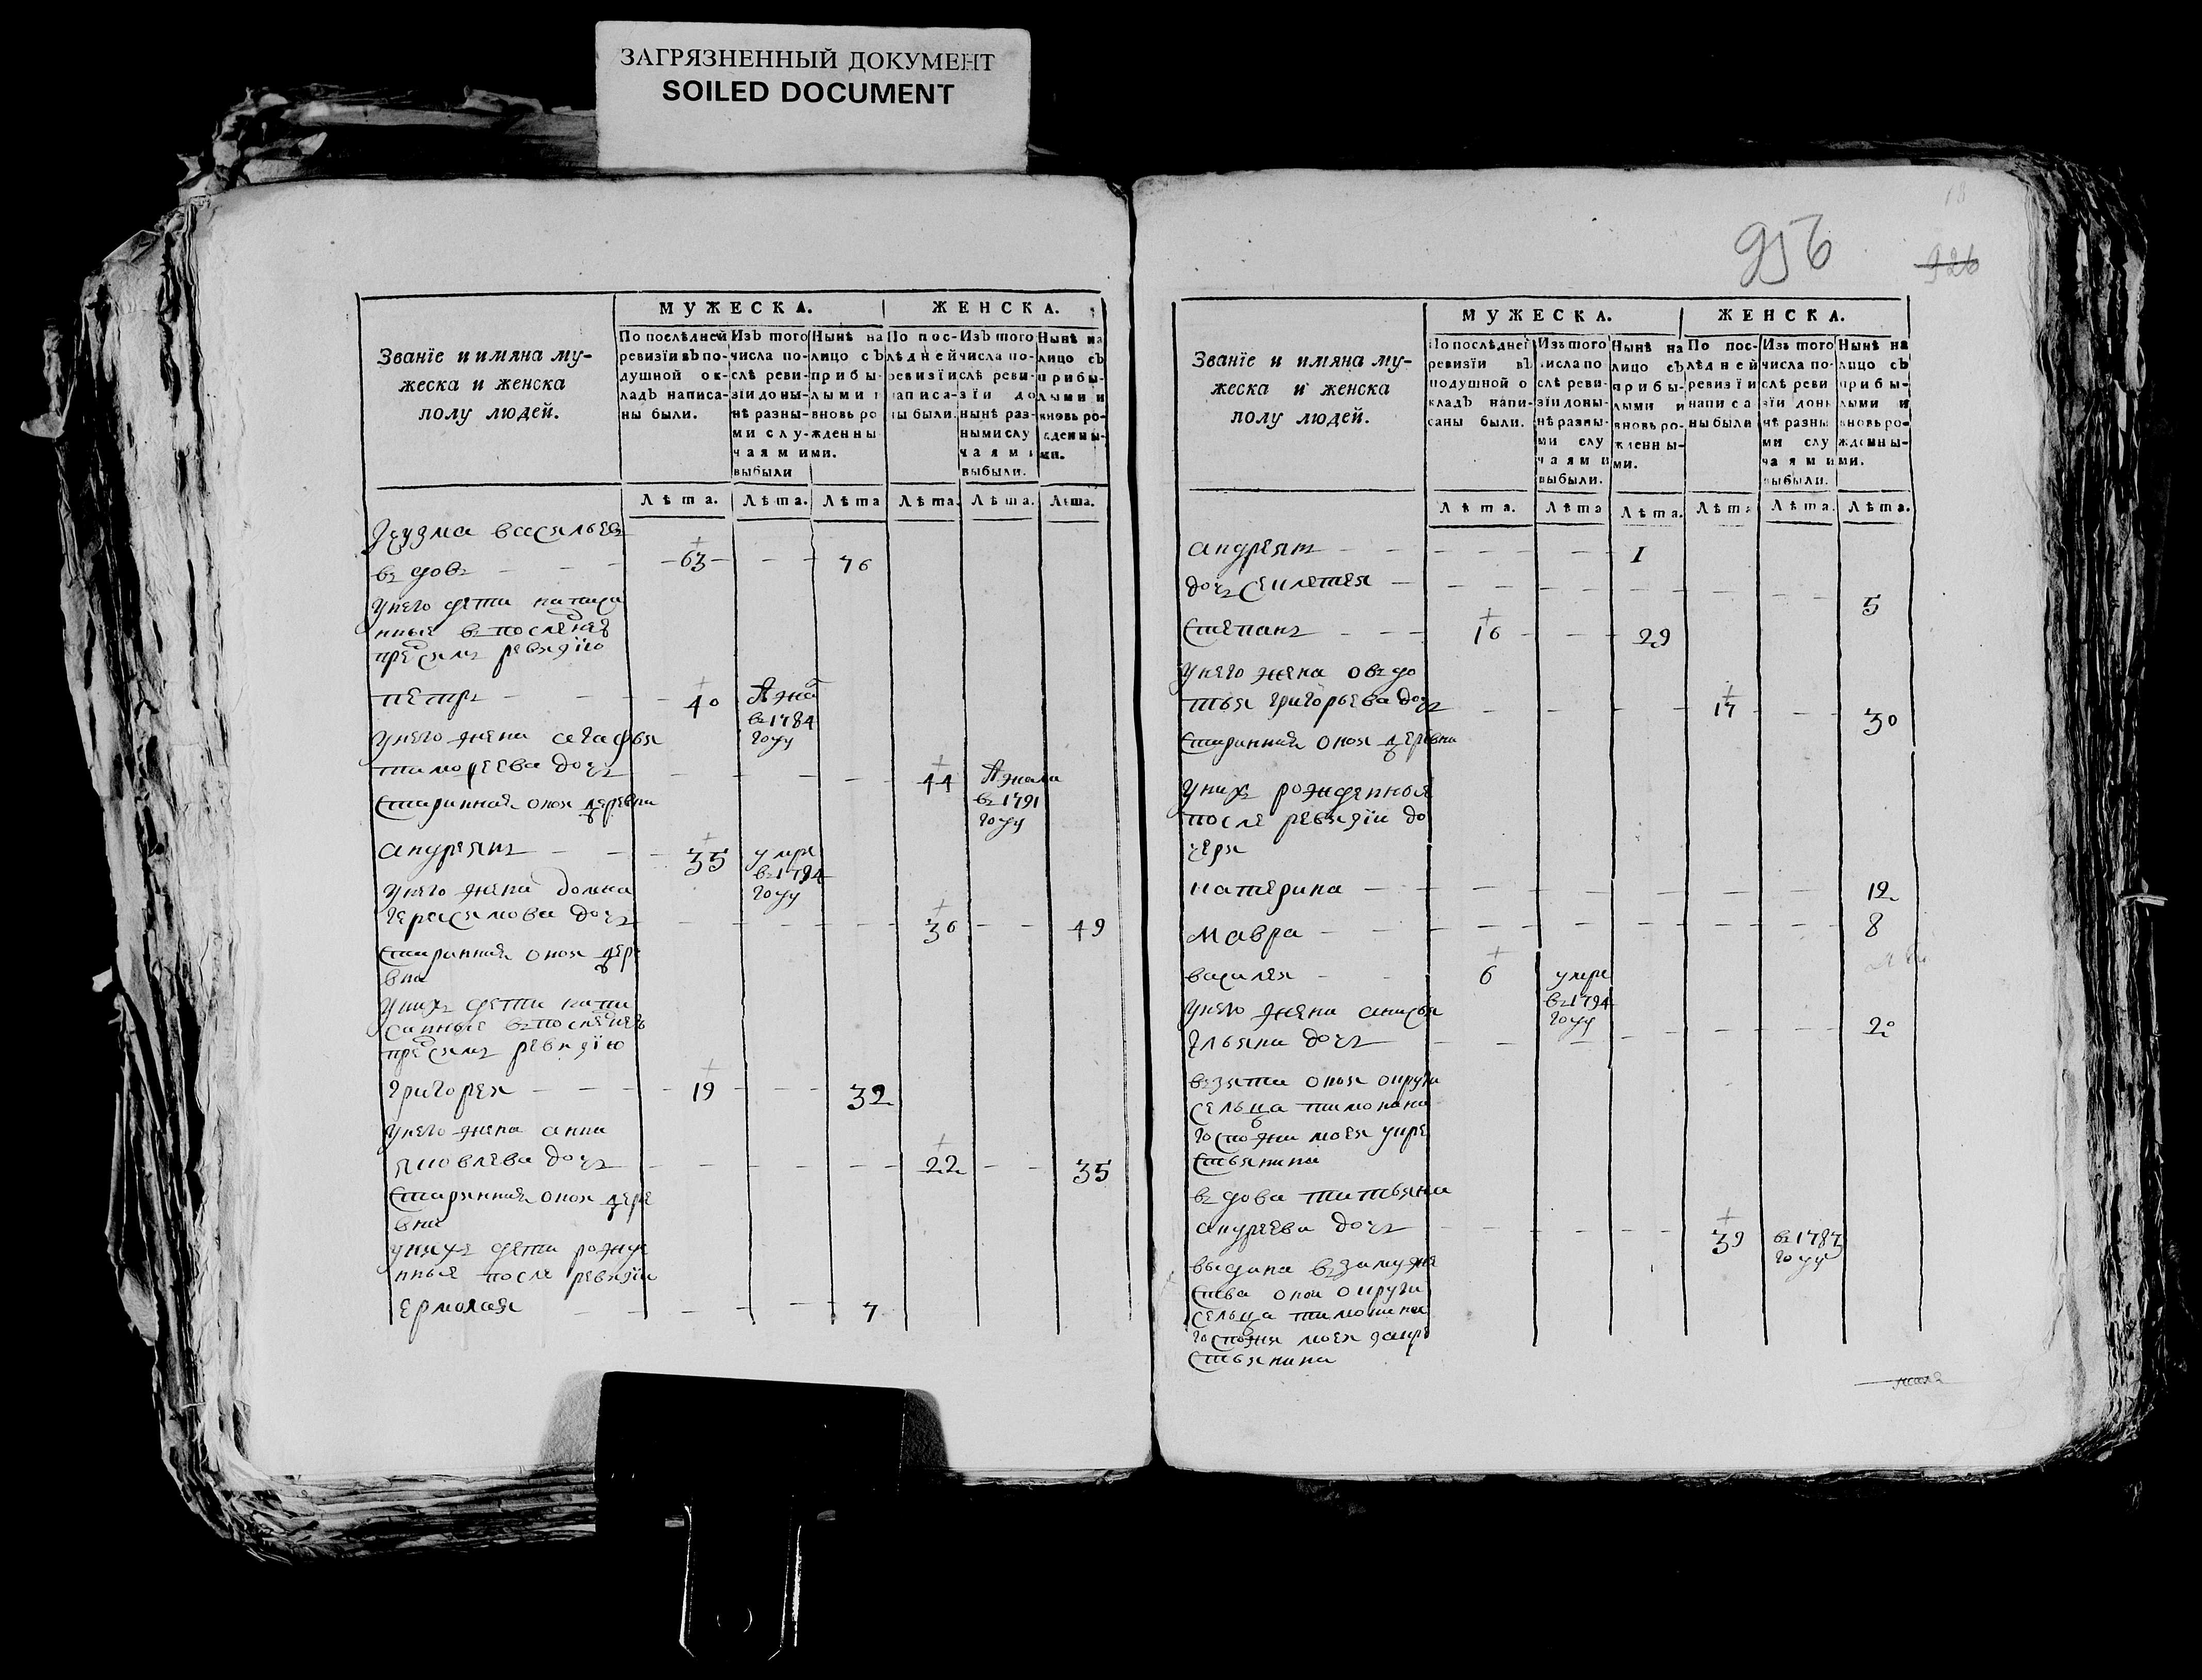 ЗАГРЯЗНЕННЫЙ ДОКУМЕНТ
SOILED DOCUMENT
МУЖЕСКА. ЖЕНСКА.
Званїе и имяна му-
жеска и женска
полу людей.
По послѣдней
ревизїи въ по-
душной ок-
ладъ написа-
ны были.
Изъ того
числа по-
слѣ реви-
зїи до ны-
нѣ разны-
ми слу-
чаями
выбыли
Нынѣ на
лицо съ
прибы-
лыми и
вновь ро
жденны
ми.
По пос-
лѣдней
ревизїи
написа-
ны были.
Изъ того
числа по-
слѣ реви-
зїи до
нынѣ раз-
ными слу
чаями
выбыли.
Нынѣ на
лицо съ
прибы-
лыми и
вновь ро-
жденны-
ми.
Лѣта. Лѣта. Лѣта Лѣта. Лѣта. Лѣта.
васильевъ
въдовъ 63 76
унего дети написа
нные въпоследнею
ревизїю
петръ 40
въ1784
году
унего жена агафья
тимофеева дочь 44
въ1791
году
старинная оноя деревни
андреянъ 35 умре
въ1794
году
унего жена домна
герасимова дочь 36 49
старинная оноя дере
вни
унихъ дети напи
санные въпоследнею
ревизїю
григорея 19 32
унего жена анна
яковлева дочь 22 35
старинная оноя дере
вни
унихъ дети рожде
нные после ревизїи
ермолая 7
956
926
МУЖЕСКА. ЖЕНСКА.
Званїе и имяна му-
жеска и женска
полу людей.
По послѣдней
ревизїи въ
подушной о
кладъ напи-
саны были.
Изъ того
числа по
слѣ реви-
зїи до ны-
нѣ разны-
ми слу
чаями
выбыли.
Нынѣ на
лицо съ
прибы-
лыми и
вновь ро-
жденны-
ми.
По пос-
лѣдней
ревизїи
написа
ны были
Изъ того
числа по-
слѣ реви
зїи доны
нѣ разны
ми слу
чаями
выбыли.
Нынѣ на
лицо съ
прибы-
лыми и
вновь ро-
жденны-
ми.
Лѣта. Лѣта Лѣта. Лѣта Лѣта. Лѣта.
андреянъ 1
дочь 5
степанъ 16 29
унего жена овъдо
тья григорьева дочь 17 30
старинная оноя деревни
унихъ рожденные
после ревизїи до
чери
катерина 12
мавра 8
василея 6 умре
въ1794
году
унего жена анисья
дочь 20
възята оноя округи
сельца
госпожи моея кре
стьянина
въдова татьяна
андреева дочь 39 въ1787
году
выдана възамуже
ства оной округи
сельца
госпожи моея
стьянина